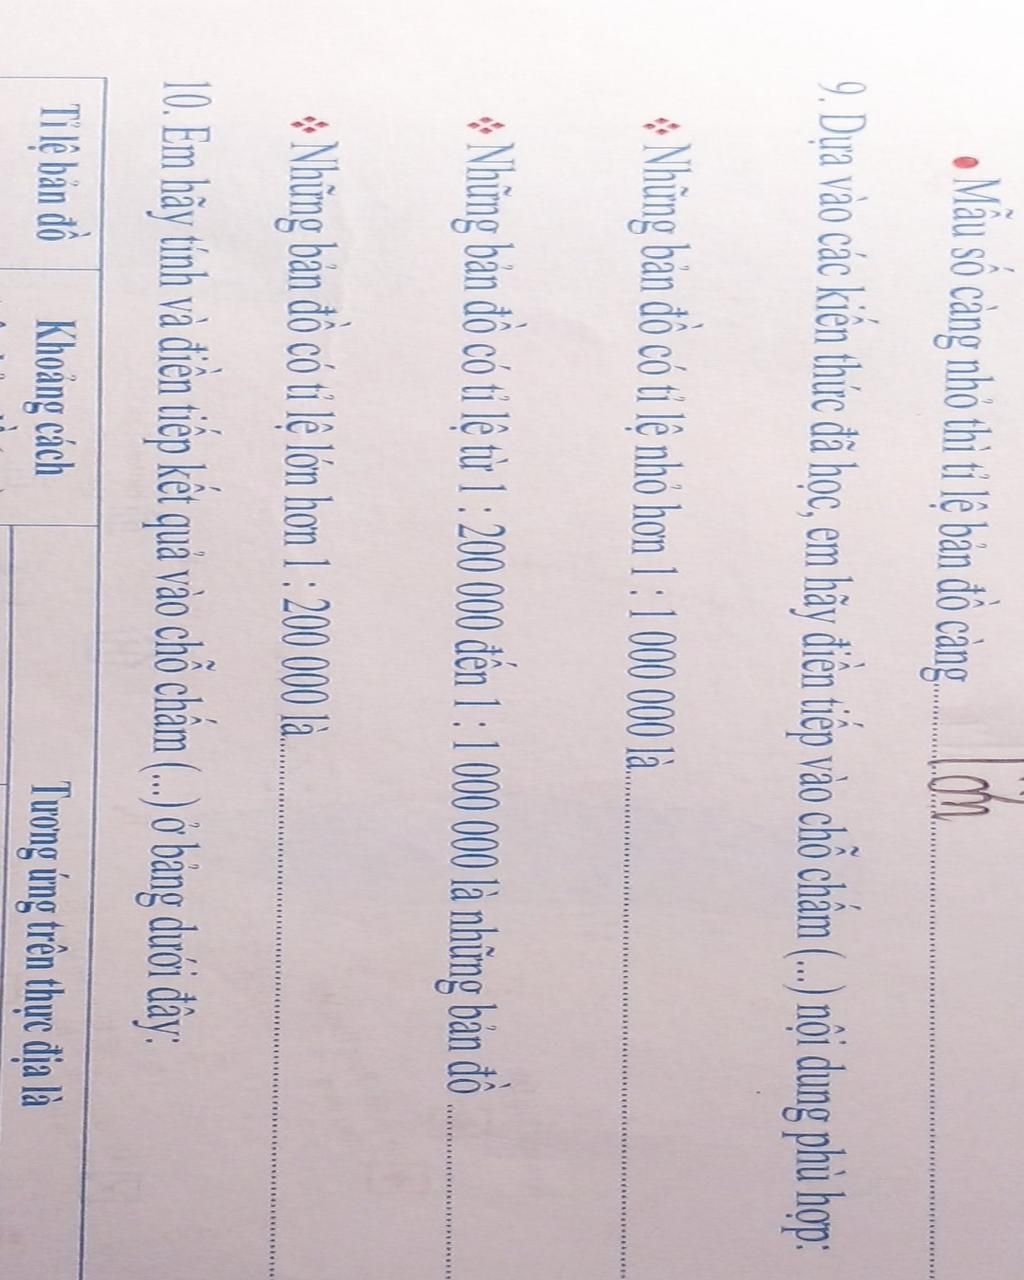 • Mẫu số càng nhỏ thì tỉ lệ bản đồ càng........lớn........
9. Dựa vào các kiến thức đã học, em hãy điền tiếp vào chỗ chấm (...) nội dung phù hợp:
❖ Những bản đồ có tỉ lệ nhỏ hơn 1 : 1 000 000 là........
❖ Những bản đồ có tỉ lệ từ 1 : 200 000 đến 1 : 1 000 000 là những bản đồ ........
❖ Những bản đồ có tỉ lệ lớn hơn 1 : 200 000 là........
10. Em hãy tính và điền tiếp kết quả vào chỗ chấm (...) ở bảng dưới đây:
Tỉ lệ bản đồ Khoảng cách Tương ứng trên thực địa là